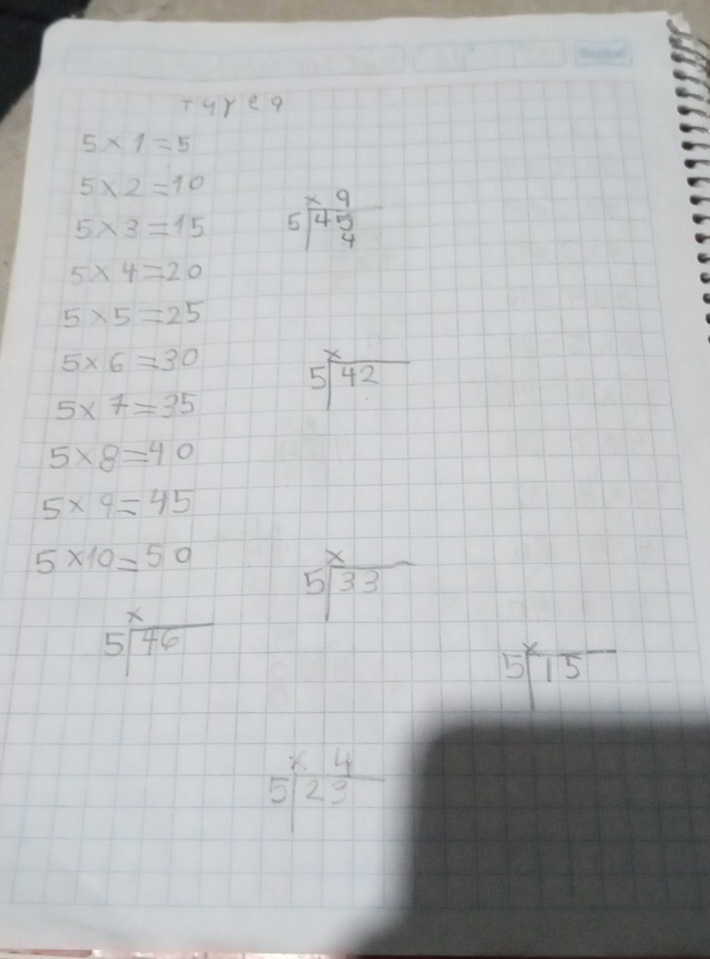 Tarea
5×1=5
5×2=10
5×3=15
5×4=20
5×5=25
5×6=30
5×7=35
5×8=40
5×9=45
5×10=50
× 9
5 49
4
×
5 42
×
5 33
×
5 46
×
5 15
× 4
5 23